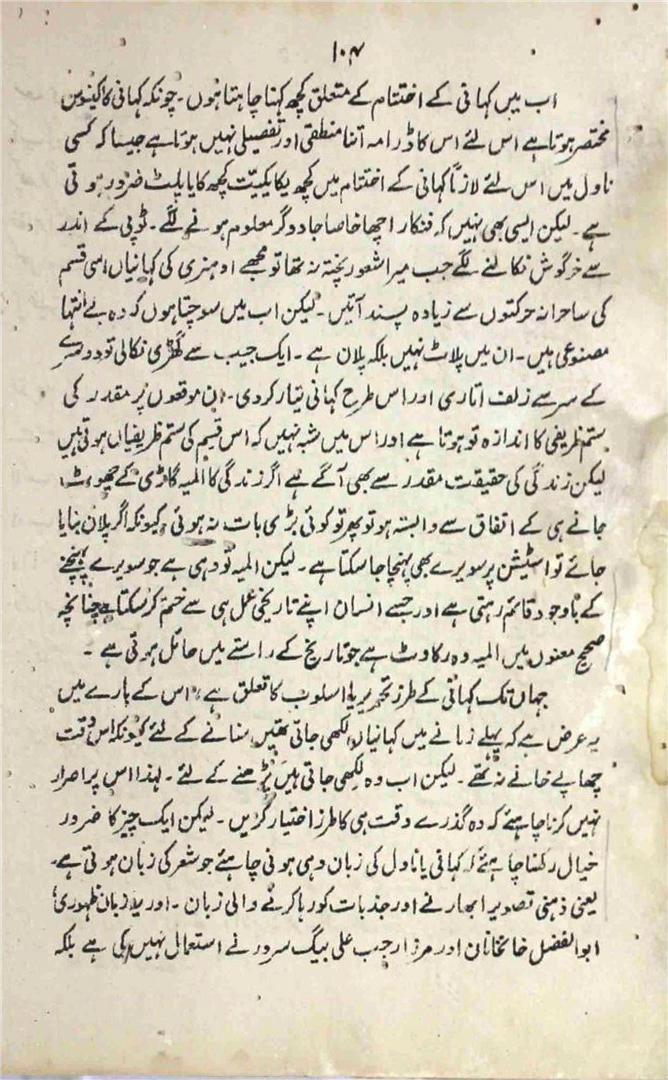 ۱۰۴
اب میں کہانی کے اختتام کے متعلق کچھ کہنا چاہتا ہوں۔ چونکہ کہانی کا کینوس
مختصر ہوتا ہے اس لئے اس کا ڈرامہ اتنا منطقی اور تفصیلی نہیں ہوتا ہے جیسا کہ کسی
ناول میں اس لئے لازماً کہانی کے اختتام میں کچھ یکایکیت کچھ کایا پلٹ ضرور ہوتی
ہے۔ لیکن ایسی بھی نہیں کہ فنکار اچھا خاصا جادوگر معلوم ہونے لگے۔ ٹوپی کے اندر
سے خرگوش نکالنے لگے جب میرا شعور پختہ نہ تھا تو مجھے اوہنری کی کہانیاں اسی قسم
کی ساحرانہ حرکتوں سے زیادہ پسند آتیں۔ لیکن اب میں سوچتا ہوں کہ وہ بے انتہا
مصنوعی ہیں۔ ان میں پلاٹ نہیں بلکہ پلان ہے۔ ایک جیب سے گھڑی نکالی تو دوسرے
کے سر سے زلف اتاری اور اس طرح کہانی تیار کردی۔ ان موقعوں پر مقدر کی
ستم ظریفی کا اندازہ تو ہوتا ہے اور اس میں شبہ نہیں کہ اس قسم کی ستم ظریفیاں ہوتی ہیں
لیکن زندگی کی حقیقت مقدر سے بھی آگے ہے اگر زندگی کا المیہ گاڑی کے چھوٹ
جانے ہی کے اتفاق سے وابستہ ہو تو پھر تو کوئی بڑی بات نہ ہوئی، کیونکہ اگر پلان بنایا
جائے تو اسٹیشن پر سویرے بھی پہنچا جا سکتا ہے۔ لیکن المیہ تو وہی ہے جو سویرے پہنچنے
کے باوجود قائم رہتی ہے اور جسے انسان اپنے تاریخی عمل ہی سے ختم کرسکتا ہے چنانچہ
صحیح معنوں میں المیہ وہ رکاوٹ ہے جو تاریخ کے راستے میں حائل ہوتی ہے۔
جہاں تک کہانی کے طرز تحریر یا اسلوب کا تعلق ہے، اس کے بارے میں
یہ عرض ہے کہ پہلے زمانے میں کہانیاں لکھی جاتی تھیں سنانے کے لئے کیونکہ اس وقت
چھاپے خانے نہ تھے۔ لیکن اب وہ لکھی جاتی ہیں پڑھنے کے لئے۔ لہذا اس پر اصرار
نہیں کرنا چاہئے کہ وہ گذرے وقت ہی کا طرز اختیار کریں۔ لیکن ایک چیز کا ضرور
خیال رکھنا چاہئے کہ کہانی یا ناول کی زبان وہی ہونی چاہئے جو شعر کی زبان ہوتی ہے۔
یعنی ذہنی تصویر ابھارنے اور جذبات کو رہا کرنے والی زبان۔ اور یہ زبان ظہوری،
ابوالفضل خانخانان اور مرزا رجب علی بیگ سرور نے استعمال نہیں کی ہے بلکہ